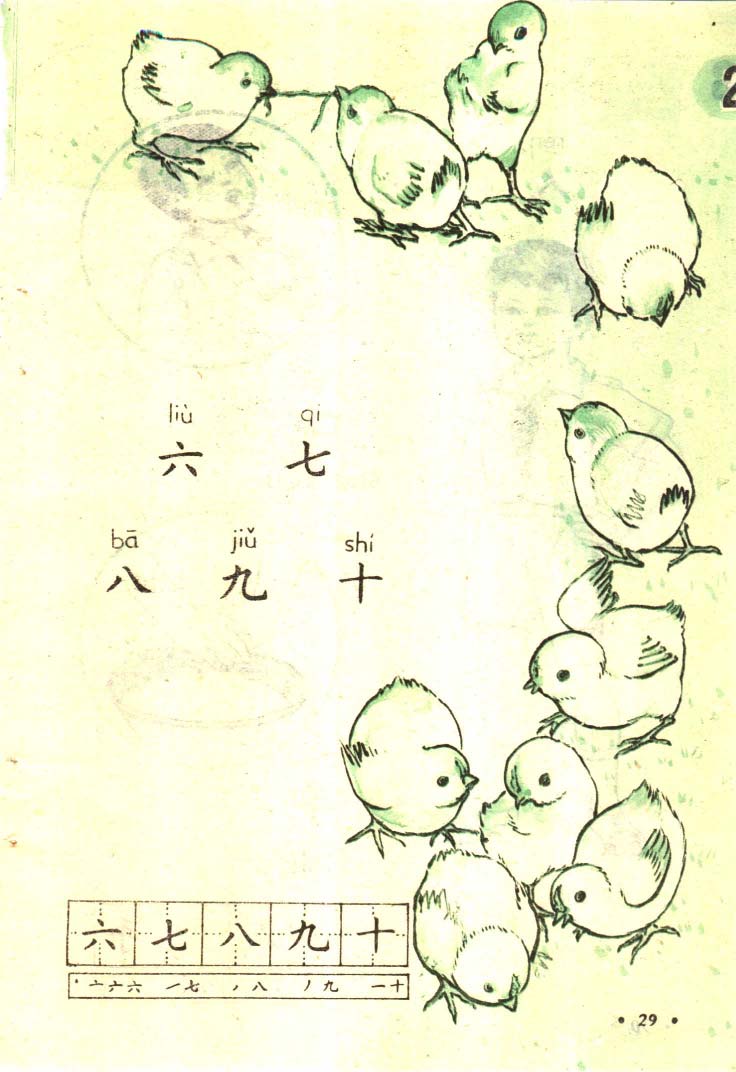 liù qi
六 七
bā jiǔ shí
八 九 十
六 七 八 九 十
丶 亠 六 一 七 丿 八 丿 九 一 十
• 29 •